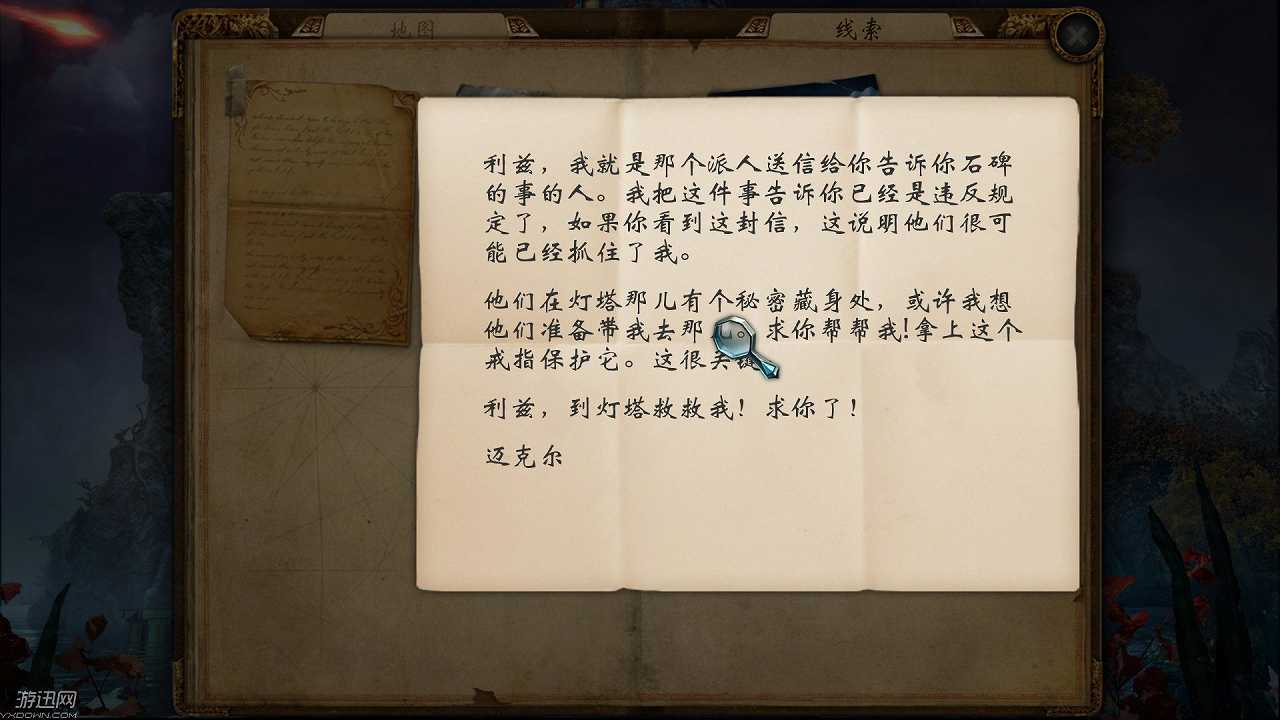 地图
线索
利兹，我就是那个派人送信给你告诉你石碑
的事的人。我把这件事告诉你已经是违反规
定了，如果你看到这封信，这说明他们很可
能已经抓住了我。
他们在灯塔那儿有个秘密藏身处，或许我想
他们准备带我去那。求你帮帮我!拿上这个
戒指保护它。这很关
利兹，到灯塔救救我！求你了！
迈克尔
游迅网
YXDOWN.COM